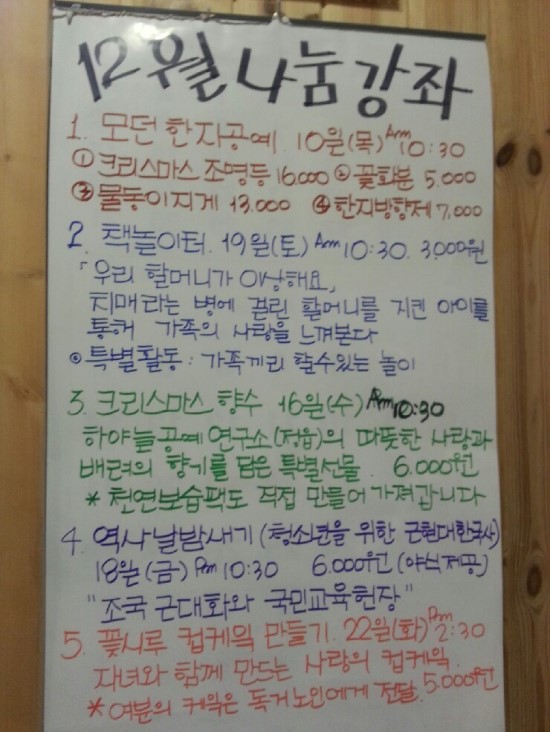 12월 나눔강좌
1. 모던한지공예. 10일(목) Am 10:30
① 크리스마스 조명등 16.000 ② 꽃화분 5.000
③ 물동이지게 13.000 ④ 한지방향제 7,000
2. 책놀이터. 19일(토) Am 10:30. 3,000원
「우리 할머니가 이상해요」
치매라는 병에 걸린 할머니를 지킨 아이를
통해 가족의 사랑을 느껴본다
◎ 특별활동 : 가족끼리 할수있는 놀이
3. 크리스마스 향수 16일(수) Am 10:30
하야늘공예연구소(정읍)의 따뜻한 사랑과
배려의 향기를 담은 특별선물. 6.000원
* 천연보습팩도 직접 만들어 가져갑니다
4. 역사날밤새기 (청소년을 위한 근현대한국사)
18일(금) Pm 10:30 6.000원 (야식제공)
"조국 근대화와 국민교육헌장"
5. 꽃시루 컵케익 만들기. 22일(화) Pm 2:30
자녀와 함께 만드는 사랑의 컵케익.
* 여분의 케익은 독거노인에게 전달. 5.000원